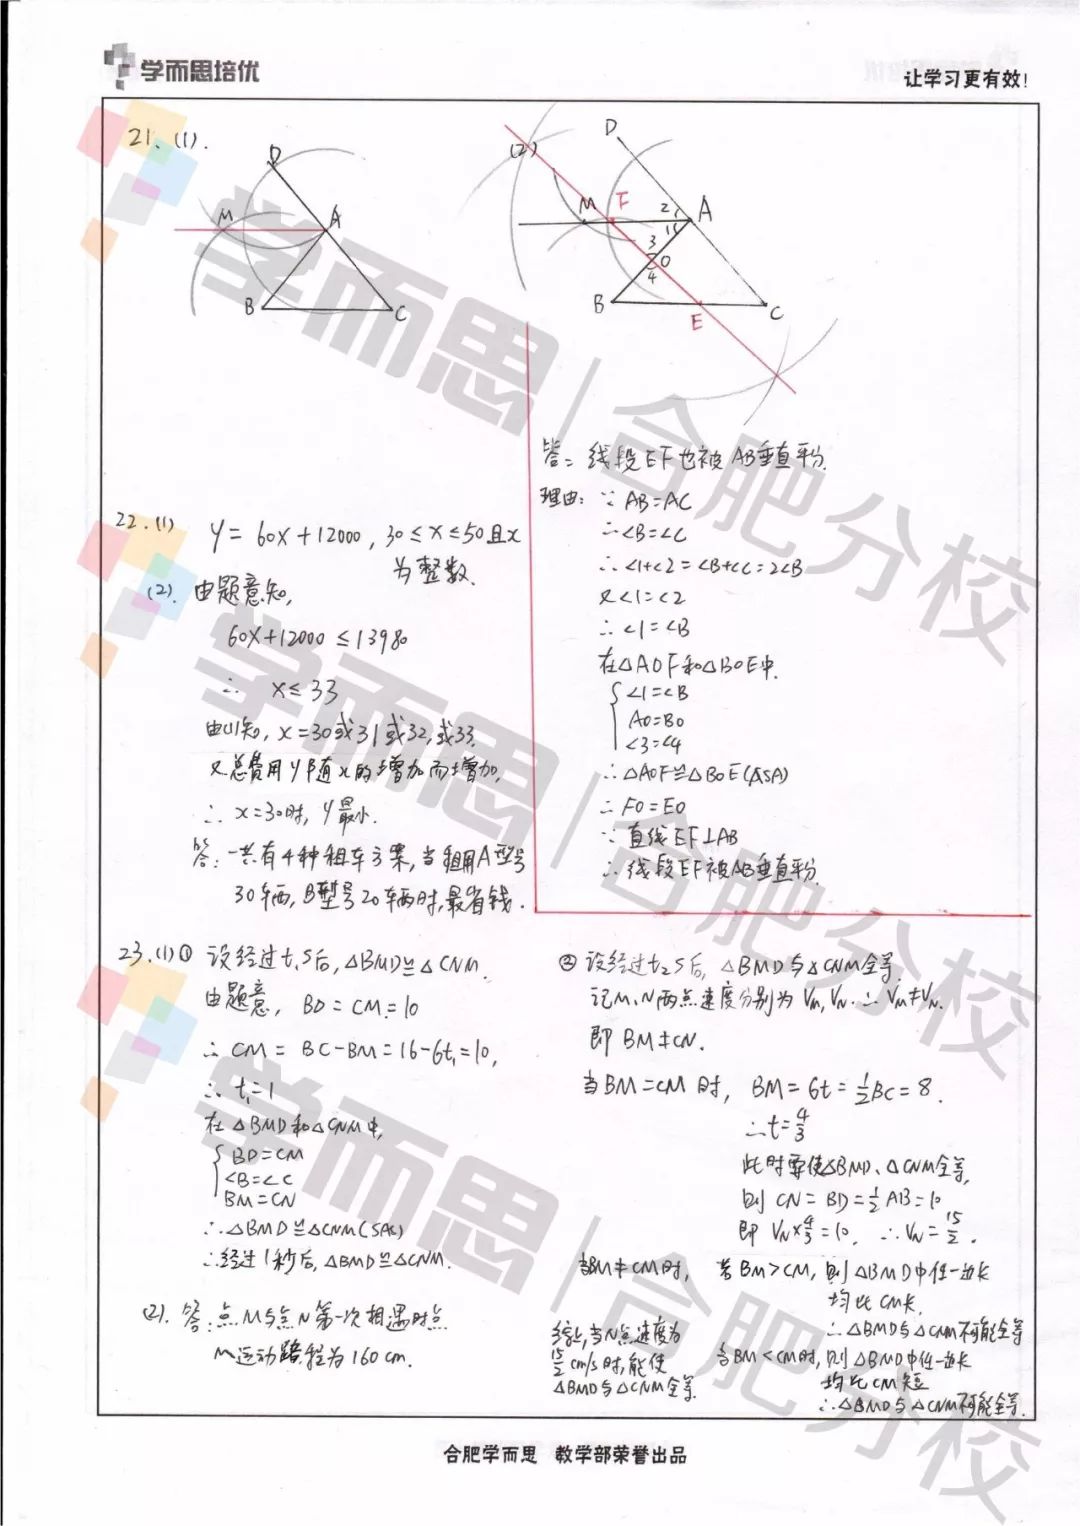 学而思培优
让学习更有效!
21、(1).
D
M
A
B
C
(2)
D
M
F
2
A
1
3
O
4
B
E
C
答: 线段EF也被AB垂直平分.
理由: ∵ AB=AC
∴∠B=∠C
∴∠1+∠2=∠B+∠C=2∠B
又∠1=∠2
∴∠1=∠B
在△AOF和△BOE中.
∠1=∠B
AO=BO
∠3=∠4
∴△AOF≌△BOE(ASA)
∴FO=EO
∵直线EF⊥AB
∴线段EF被AB垂直平分.
22.(1) y=60x+12000, 30≤x≤50且x
为整数.
(2). 由题意知,
60x+12000≤13980
∴ x≤33
由(1)知, x=30或31或32,或33.
又总费用y随x的增加而增加,
∴ x=30时, y最小.
答: 一共有4种租车方案, 当租用A型号
30辆, B型号20辆时,最省钱.
23.(1)① 设经过t₁s后, △BMD≌△CNM.
由题意, BD=CM=10
∴ CM= BC-BM=16-6t₁=10,
∴ t₁=1
在△BMD和△CNM中,
BD=CM
∠B=∠C
BM=CN
∴△BMD≌△CNM(SAS)
∴经过1秒后, △BMD≌△CNM.
(2). 答: 点M与点N第一次相遇时点
M运动路程为160cm.
② 设经过t₂s后, △BMD与△CNM全等.
记M、N两点速度分别为VM,VN. ∴VM≠VN.
即 BM≠CN.
当BM=CM时, BM=6t=1/2BC=8.
∴t=4/3
此时要使△BMD、△CNM全等,
则 CN=BD=1/2AB=10
即 VN×4/3=10, ∴VN=15/2.
当BM≠CM时, 若BM>CM, 则△BMD中任一边长
均比CM长.
∴△BMD与△CNM不可能全等
当BM<CM时, 则△BMD中任一边长
均比CM短
∴△BMD与△CNM不可能全等.
综上,当N点速度为
15/2 cm/s时,能使
△BMD与△CNM全等.
合肥学而思 教学部荣誉出品
学而思|合肥分校
学而思|合肥分校
学而思|合肥分校